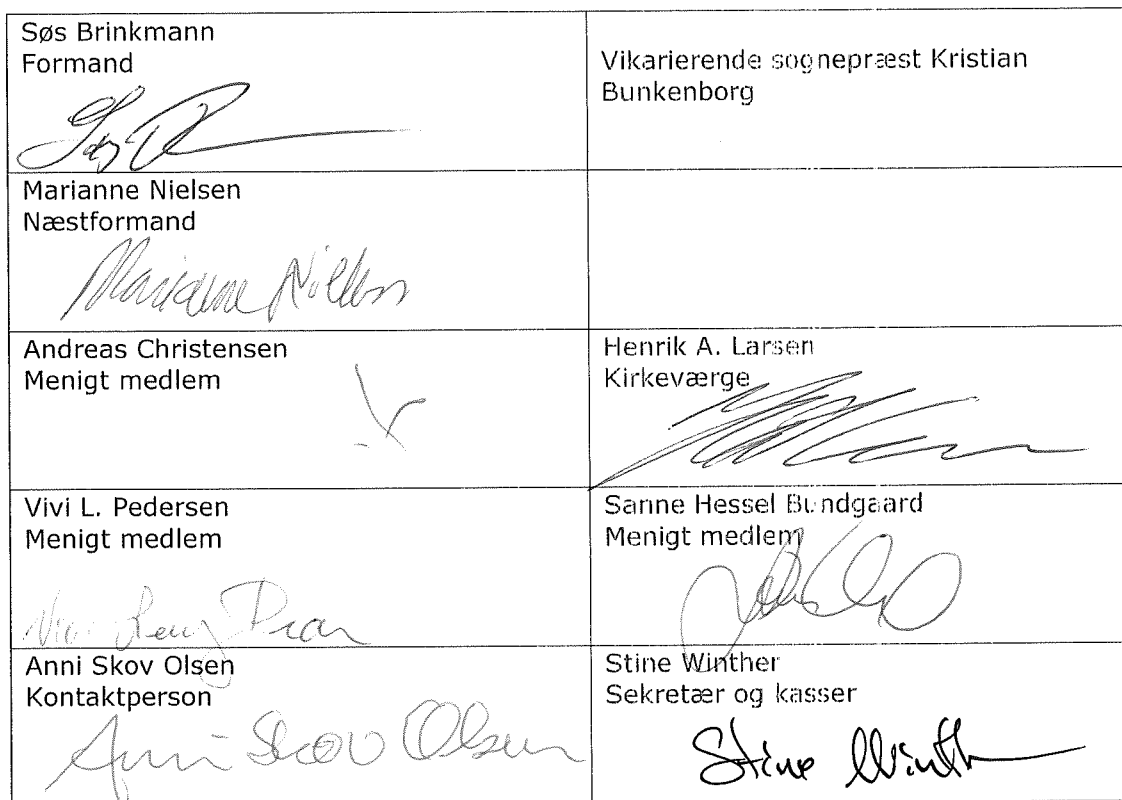 Søs Brinkmann
Formand
Vikarierende sognepræst Kristian
Bunkenborg
Marianne Nielsen
Næstformand
Marianne Nielsen
Andreas Christensen
Menigt medlem
Henrik A. Larsen
Kirkeværge
Vivi L. Pedersen
Menigt medlem
Sanne Hessel Bundgaard
Menigt medlem
Anni Skov Olsen
Kontaktperson
Anni Skov Olsen
Stine Winther
Sekretær og kasser
Stine Winth